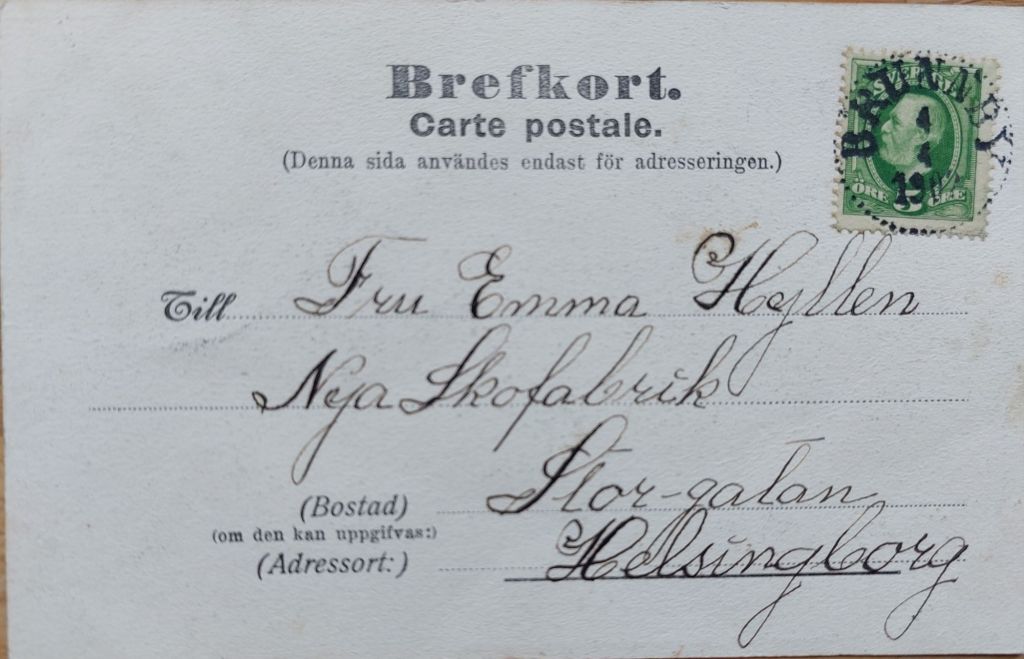 Brefkort.
Carte postale.
(Denna sida användes endast för adresseringen.)
BRUNNBY
4
4
ÖRE 5 ÖRE
Till Fru Emma Hyllen
Nya Skofabrik
(Bostad) Stor-gatan
(om den kan uppgifvas:)
(Adressort:) Helsingborg